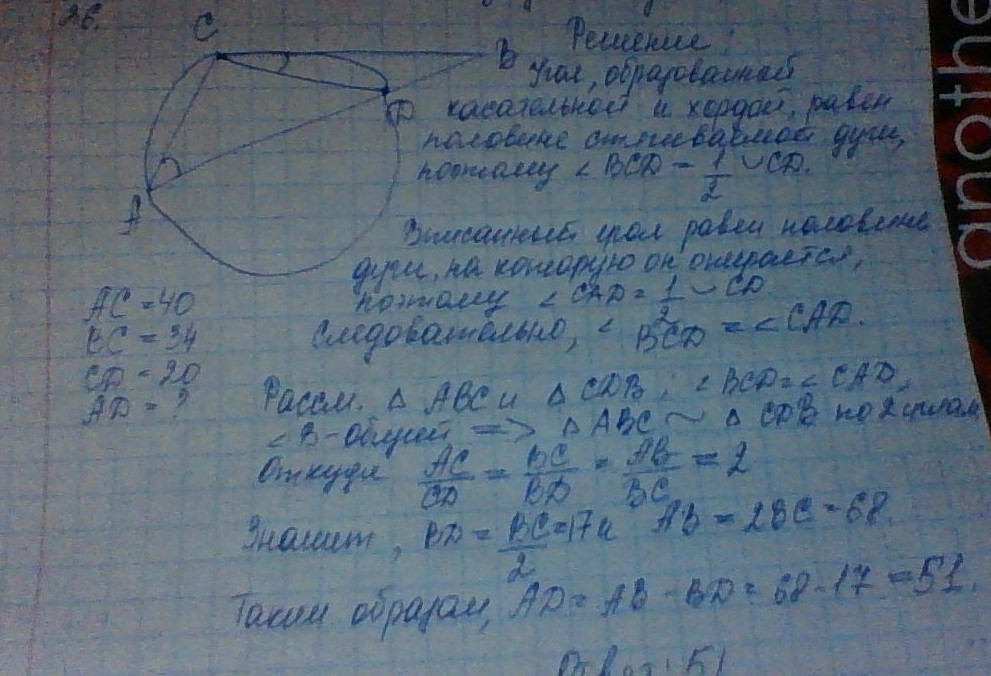 26.
C
B
D
A
Решение:
Угол, образованный
касательной и хордой, равен
половине стягиваемой дуги,
поэтому ∠ BCD = 1/2 ◡ CD.
Вписанный угол равен половине
дуги, на которую он опирается,
поэтому ∠ CAD = 1/2 ◡ CD
Следовательно, ∠ BCD = ∠ CAD.
AC = 40
BC = 34
CD = 20
AD = ?
Рассм. △ ABC и △ CDB: ∠ BCD = ∠ CAD,
∠ B - общий => △ ABC ~ △ CDB по 2 углам
Откуда AC/CD = BC/BD = AB/BC = 2
Значит, BD = BC/2 = 17 и AB = 2BC = 68.
Таким образом, AD = AB - BD = 68 - 17 = 51.
Ответ: 51
anothe